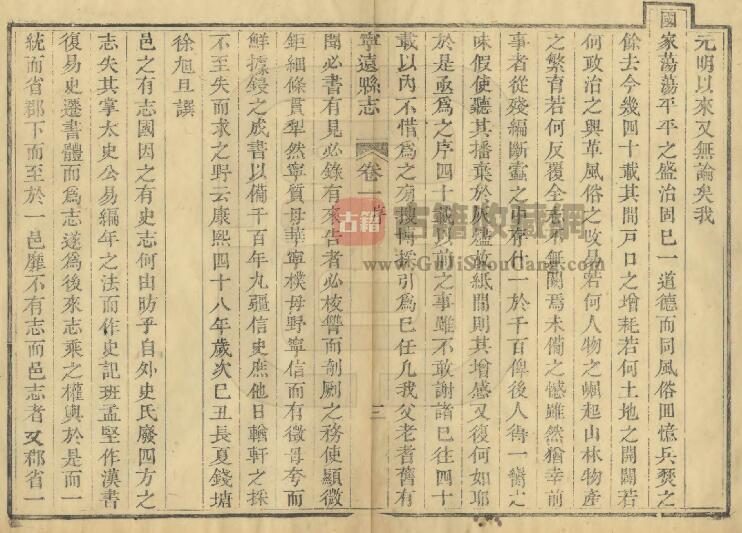 元明以來又無論矣我
國家蕩蕩平平之盛治固已一道德而同風俗回憶兵燹之
餘去今幾四十載其間戶口之增耗若何土地之開闢若
何政治之興革風俗之改易若何人物之崛起山林物產
之繁育若何反覆全志不無闕焉未備之憾雖然猶幸前
事者從殘編斷蠧之中存什一於千百俾後人得一臠之
味假使聽其播棄於灰燼故紙間則其增感又復何如耶
於是亟為之序四十載以前之事雖不敢謝諸已往四十
載以內不惜為之旁搜博採引為已任凡我父老耆舊有
寧遠縣志 卷一 序 三
聞必書有見必錄有來告者必核讐而剞劂之務使顯微
鉅細條貫犁然寧質毋華寧樸毋野寧信而有徵毋夸而
鮮據鋟之成書以備千百年九疆信史庶他日輶軒之採
不至失而求之野云康熙四十八年歲次己丑長夏錢塘
徐旭旦譔
邑之有志國因之有史志何由昉乎自外史氏廢四方之
志失其掌太史公易編年之法而作史記班孟堅作漢書
復易史遷書體而為志遂為後來志乘之權輿於是而一
統而省郡下而至於一邑靡不有志而邑志者又郡省一
古籍 古籍收藏網
www.GuJiShouCang.com